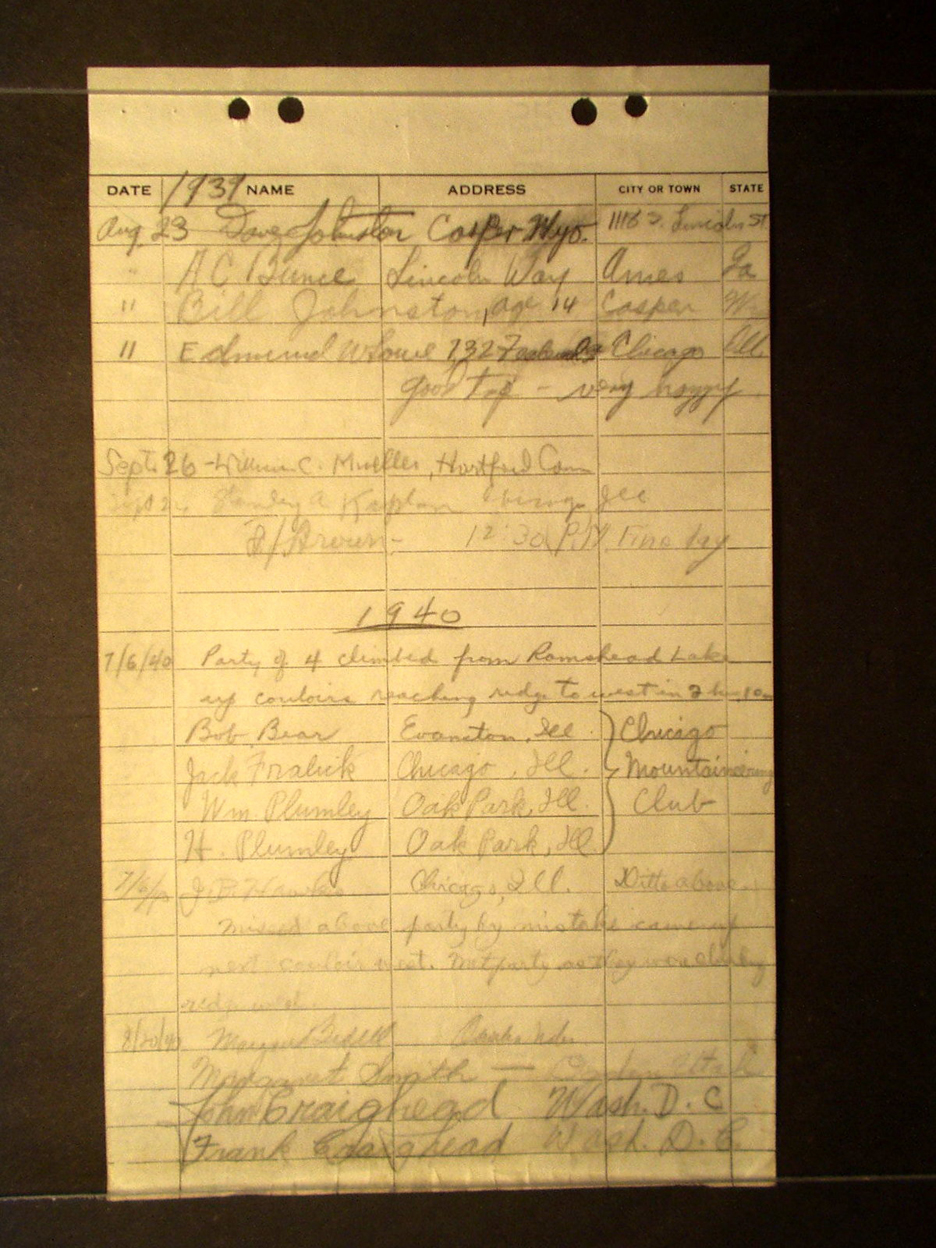 1939
DATE NAME ADDRESS CITY OR TOWN STATE
Aug 23 Dave Johnston Casper Wyo. 1116 S. Lincoln St.
" A C Bunce Lincoln Way Ames Ia
" Bill Johnston, age 14 Casper W
11 Edmund W Lowe 732 Chicago Ill.
good trip - very happy
Sept. 26 - William C. Mueller, Hartford Conn
Sept 2 Stanley A Kaplan Chicago Ill
Brown - 12:30 P.M. Fine day
1940
7/6/40 Party of 4 climbed from Ramshead Lake
up couloirs reaching ridge to west in 2 hrs, 10m
Bob Bear Evanston, Ill. } Chicago
Jack Fralick Chicago, Ill. Mountaineering
Wm. Plumley Oak Park, Ill. Club
H. Plumley Oak Park, Ill
7/6/40 J. B. Hawkes Chicago, Ill. Ditto above.
Missed above party by mistake came up
next couloir west. Met party as they were
ridge west.
8/20/40 Bedell
Margaret Smith — Ogden Utah
John Craighead Wash. D. C
Frank Craighead Wash. D. C.